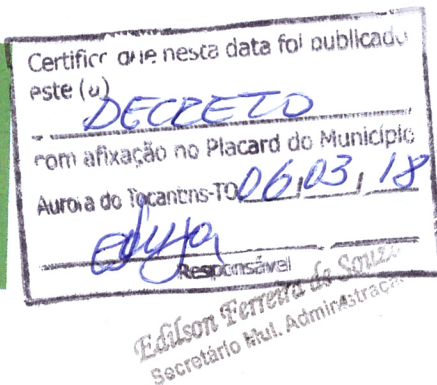 Certifico que nesta data foi publicado
este (a)
DECRETO
com afixação no Placard do Município
Aurora do Tocantins-TO 06, 03, 18
Responsável
Edilson Ferreira de Souza
Secretário Mul. Administração